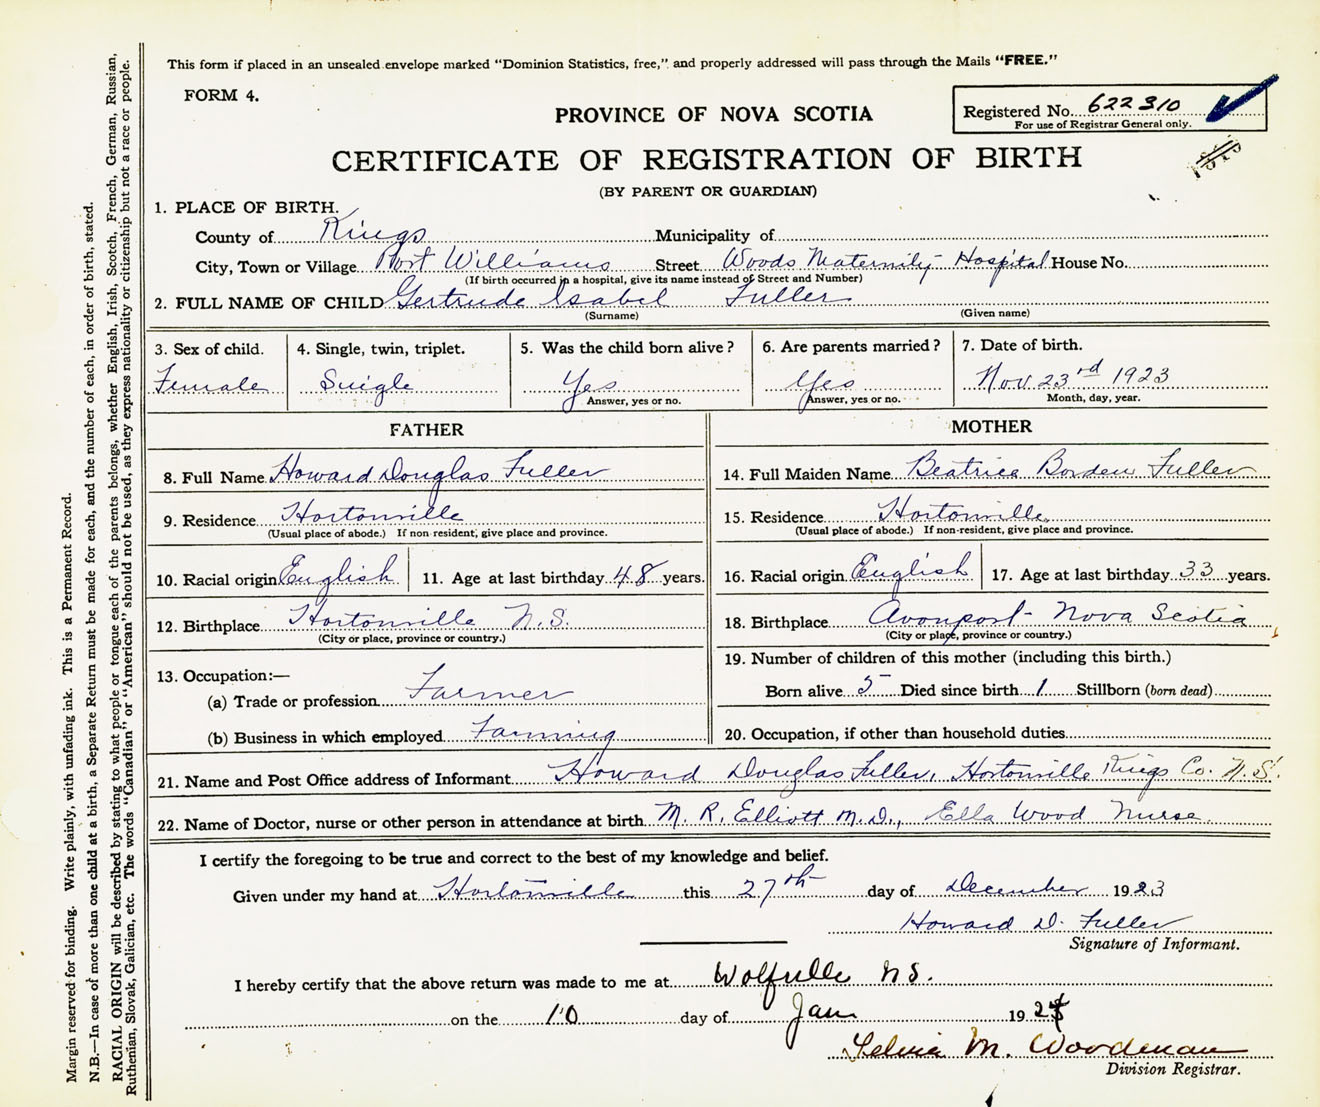 This form if placed in an unsealed envelope marked "Dominion Statistics, free," and properly addressed will pass through the Mails "FREE."
FORM 4.
PROVINCE OF NOVA SCOTIA
Registered No. 622310
For use of Registrar General only.
CERTIFICATE OF REGISTRATION OF BIRTH
(BY PARENT OR GUARDIAN)
1. PLACE OF BIRTH.
County of Kings Municipality of
City, Town or Village Port Williams Street Woods Maternity Hospital House No.
(If birth occurred in a hospital, give its name instead of Street and Number)
2. FULL NAME OF CHILD Gertrude Isabel Fuller
(Surname) (Given name)
3. Sex of child. 4. Single, twin, triplet. 5. Was the child born alive? 6. Are parents married? 7. Date of birth.
Female Single Yes Yes Nov. 23rd 1923
Answer, yes or no. Answer, yes or no. Month, day, year.
FATHER MOTHER
8. Full Name Howard Douglas Fuller 14. Full Maiden Name Beatrice Borden Fuller
9. Residence Hortonville 15. Residence Hortonville
(Usual place of abode.) If non-resident, give place and province. (Usual place of abode.) If non-resident, give place and province.
10. Racial origin English 11. Age at last birthday 48 years. 16. Racial origin English 17. Age at last birthday 33 years.
12. Birthplace Hortonville N.S. 18. Birthplace Avonport Nova Scotia
(City or place, province or country.) (City or place, province or country.)
13. Occupation:— 19. Number of children of this mother (including this birth.)
(a) Trade or profession Farmer Born alive 5 Died since birth 1 Stillborn (born dead)
(b) Business in which employed Farming 20. Occupation, if other than household duties
21. Name and Post Office address of Informant Howard Douglas Fuller, Hortonville Kings Co. N.S.
22. Name of Doctor, nurse or other person in attendance at birth M. R. Elliott M.D., Ella Wood Nurse.
I certify the foregoing to be true and correct to the best of my knowledge and belief.
Given under my hand at Hortonville this 27th day of December 1923
Howard D. Fuller
Signature of Informant.
I hereby certify that the above return was made to me at Wolfville N.S.
on the 10 day of Jan 1924
M. Woodman
Division Registrar.
Margin reserved for binding. Write plainly, with unfading ink. This is a Permanent Record.
N.B.—In case of more than one child at a birth, a Separate Return must be made for each, and the number of each, in order of birth, stated.
RACIAL ORIGIN will be described by stating to what people or tongue each of the parents belongs, whether English, Irish, Scotch, French, German, Russian,
Ruthenian, Slovak, Galician, etc. The words "Canadian" or "American" should not be used, as they express nationality or citizenship but not a race or people.